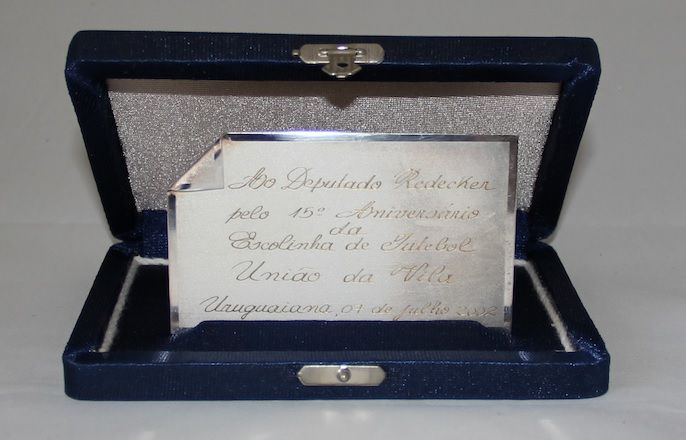 Ao Deputado Redecker
pelo 15º Aniversário
da
Escolinha de Futebol
União da Vila
Uruguaiana, 07 de Julho 2002